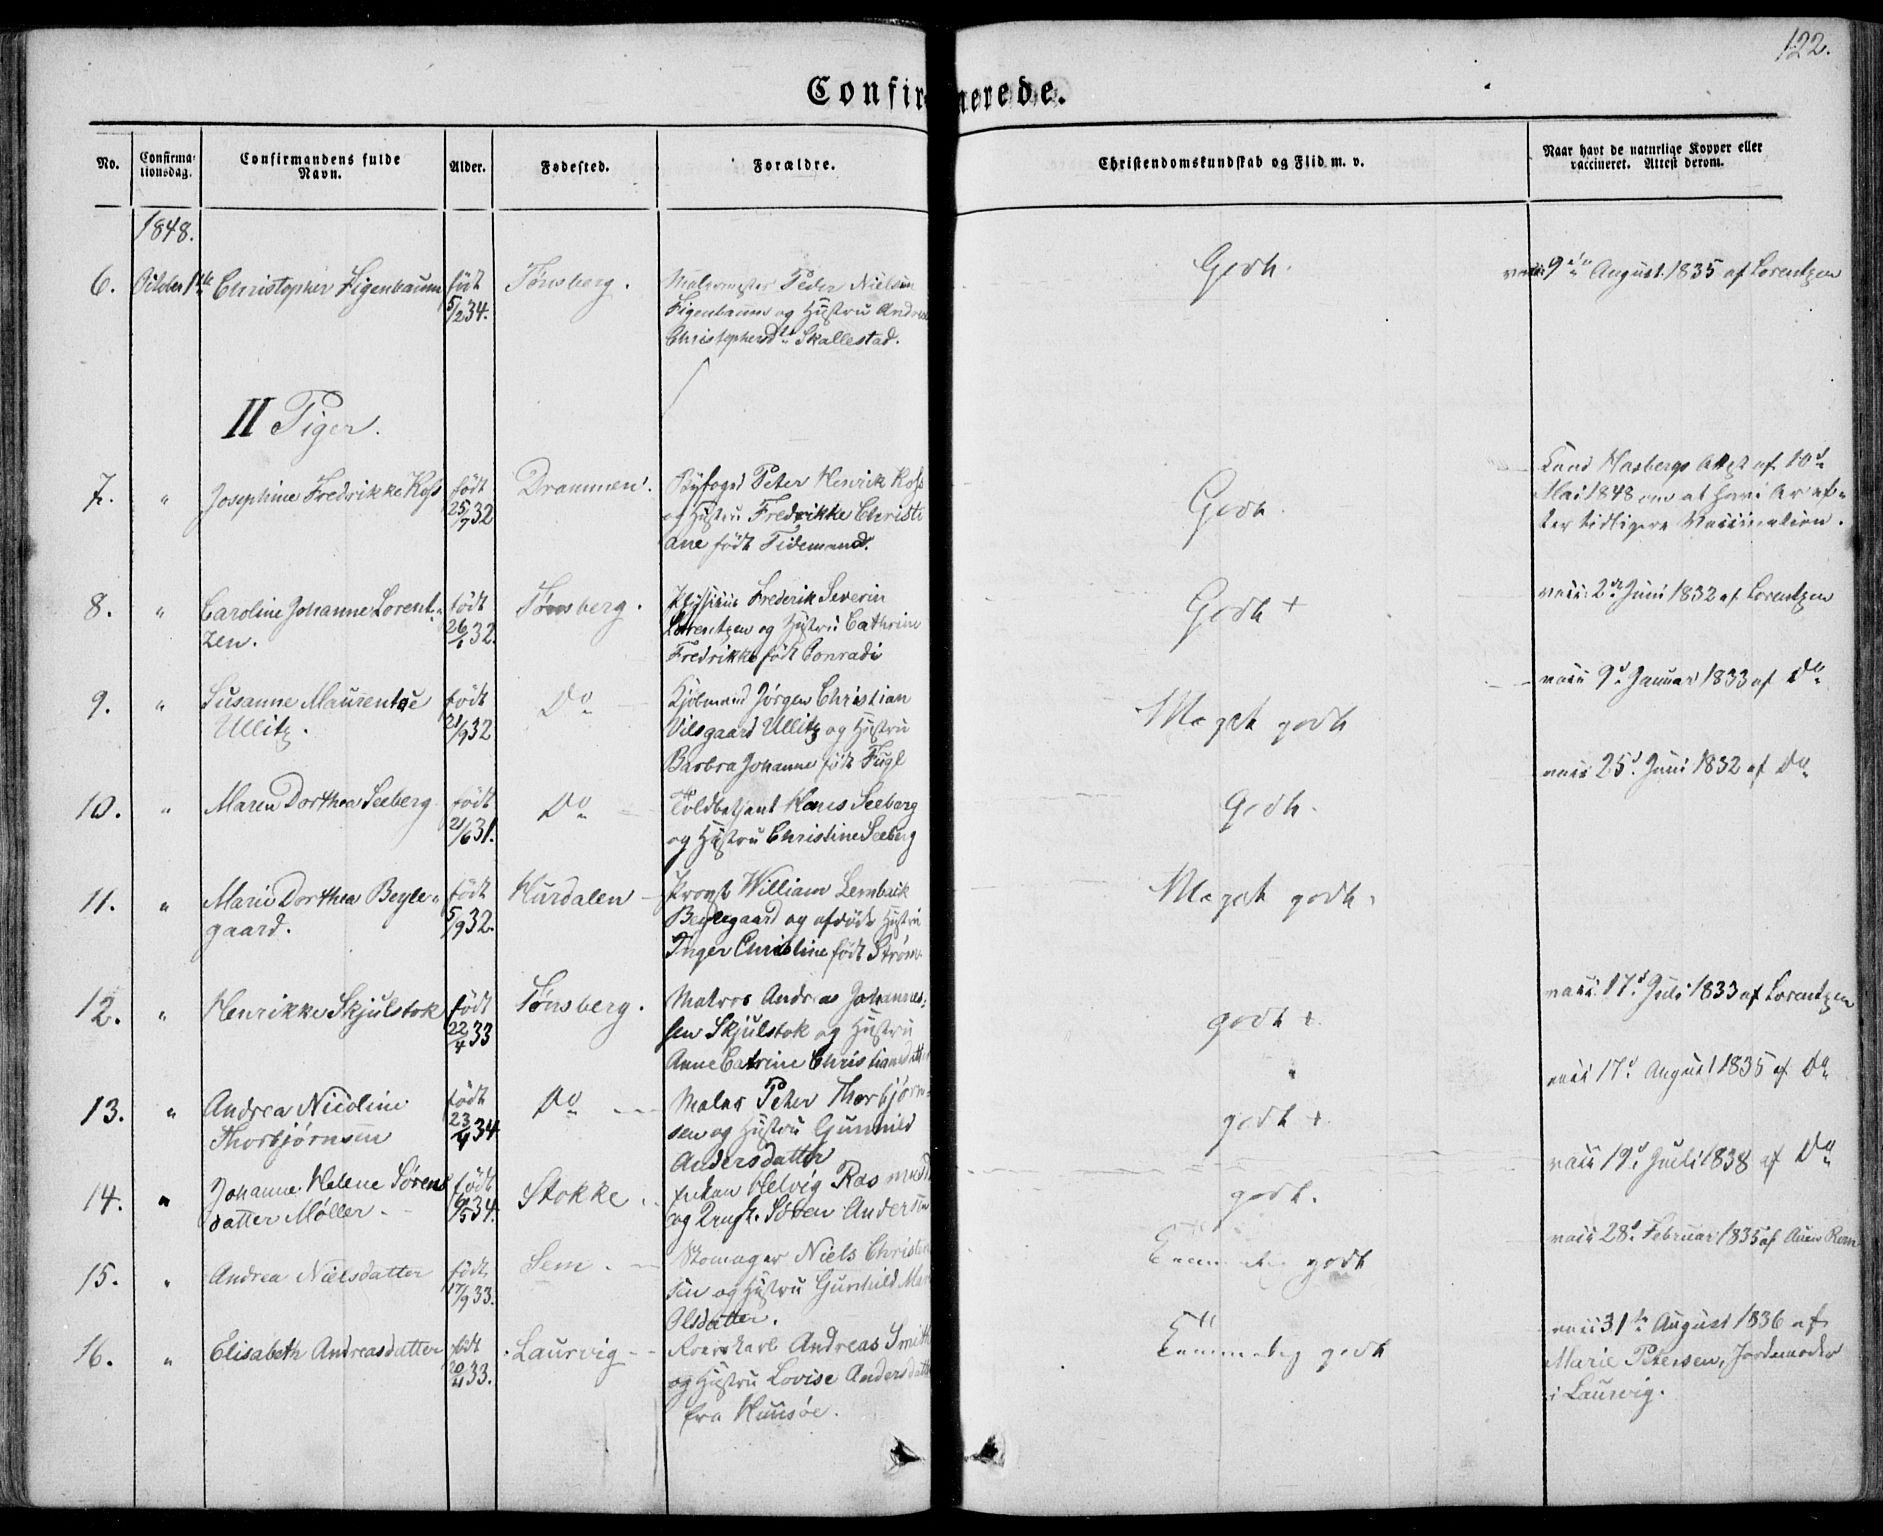 122.
Confirmerede.
No.
Confirma-
tionsdag.
Confirmandens fulde
Navn.
Alder.
Fødested.
Forældre.
Christendomskundskab og Flid m. v.
Naar havt de naturlige Kopper eller
vaccineret. Attest derom.
1848.
6. October 1ste Christopher Figenbaum født 5/2 34. Tønsberg.
Malermester Peder Nielsen
Figenbaum og Hustru Andrea
Christophersdtr Skallestad.
Godt.
vacc 9de August 1835 af Lorentzen
II Piger.
7. " Josephine Fredrikke Koss født
25/7 32
Drammen.
Byfoged Peter Henrik Koss
og Hustru Fredrikke Christi
ane født Tidemand.
Godt.
Attest af 10de
Mai 1848 om at have Ar ef-
ter tidligere Vaccination.
8. " Caroline Johanne Lorent-
zen.
født
26/1 32.
Tønsberg.
Frederik Severin
Lorentzen og Hustru Cathrine
Fredrikke født Conradi
Godt +
vacc. 2de Juni 1832 af Lorentzen
9. " Susanne Maurentse
Ullitz.
født
21/9 32
Do
Kjøbmand Jørgen Christian
Vilsgaard Ullitz og Hustru
Barbra Johanne født Fugl
Meget godt
vacc 9d Januar 1833 af Do
10. " Maren Dorthea Seeberg
født
21/6 31.
Do
Toldbetjent Hans Seeberg
og Hustru Christine Seeberg
Godt.
vacc 25d Juni 1832 af Do
11. " Marie Dorthea Beyle-
gaard.
født
5/9 32.
Hurdalen
Provst William Lembrik
Beylegaard og afdøde Hustru
Inger Christine født Strøm.
Meget godt.
12. " Henrikke Skjulstok
født
22/4 33
Tønsberg.
Matros Andreas Johannes-
sen Skjulstok og Hustru
Anne Catrine Christiansdatter
godt +
vacc. 17d Juli 1833 af Lorentzen
13. " Andrea Nicoline
Thorbjørnsen
født
23/4 34
Do
Maler Peter Thorbjørn-
sen og Hustru Gunnild
Andersdatter
godt +
vacc 17d August 1835 af Do
14. " Johanne Helene Sørens
datter Møller.
født
6/5 34.
Stokke
Enken Helvig Rasmusd
og Søren Andersen
godt.
vacc 19d Juli 1838 af Do
15. " Andrea Nielsdatter
født
17/9 33.
Sem.
Skomager Niels Christen
sen og Hustru Gunhild Mar
Olsdatter.
godt
vacc 28d Februar 1835 af
16. " Elisabeth Andreasdatter
født
20/4 33.
Laurvig
Andreas Smith
og Hustru Lovise Andersdatter
fra
godt
vacc 31te August 1836 af
Marie Petersen, Jordemoder
i Laurvig.